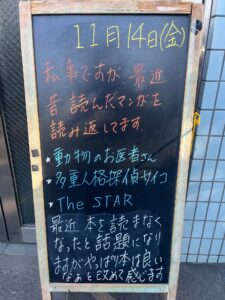 11月14日(金)
私事ですが、最近
昔読んだマンガを
読み返してます。
★動物のお医者さん
★多重人格探偵サイコ
★The STAR
最近本を読まなく
なったと話題になり
ますがやっぱり本は良い
なぁと改めて感じます